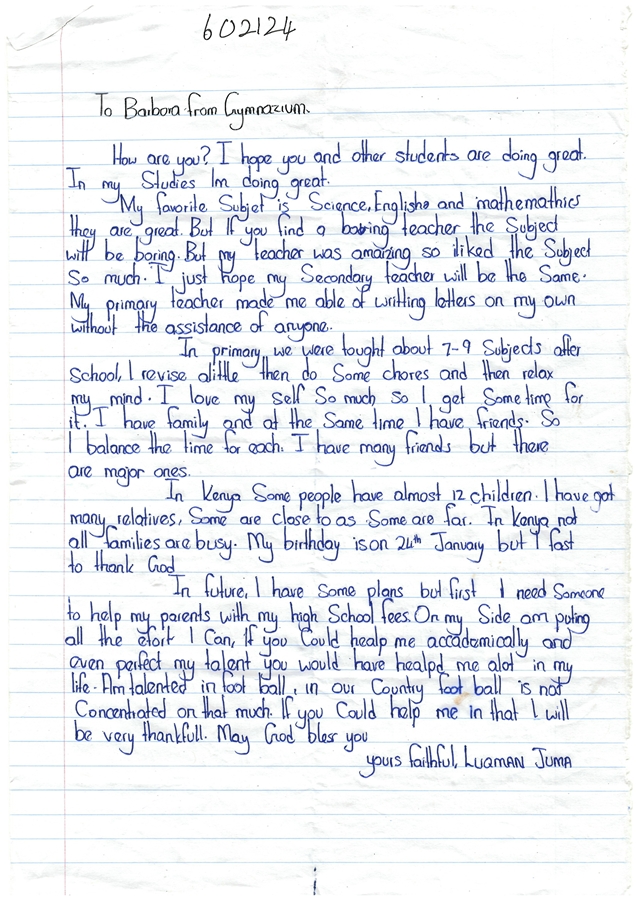 602124
To Barbora from Gymnazium.
How are you? I hope you and other students are doing great.
In my Studies Im doing great.
My favorite Subjet is Science, Englishe and mathemathics
they are great. But If you find a boring teacher the Subject
will be boring. But my teacher was amazing so iliked the Subject
So much. I just hope my Secondary teacher will be the Same.
My primary teacher made me able of writting letters on my own
without the assistance of anyone.
In primary, we were tought about 7-9 Subjects after
School, I revise alittle then do Some chores and then relax
my mind. I love my self So much so I get Sometime for
it. I have family and at the Same time I have friends. So
I balance the time for each. I have many friends but there
are major ones.
In Kenya Some people have almost 12 children. I have got
many relatives, Some are close to as Some are far. In Kenya not
all families are busy. My birthday is on 24th January but I fast
to thank God
In future, I have Some plans but first I need Someone
to help my parents with my high School fees. On my Side am puting
all the efort I Can, If you Could healp me accademically and
even perfect my talent you would have healpd me alot in my
life. Am talented in foot ball, in our Country foot ball is not
Concentrated on that much. If you Could help me in that I will
be very thankfull. May God bless you
yours faithful, LUQMAN JUMA